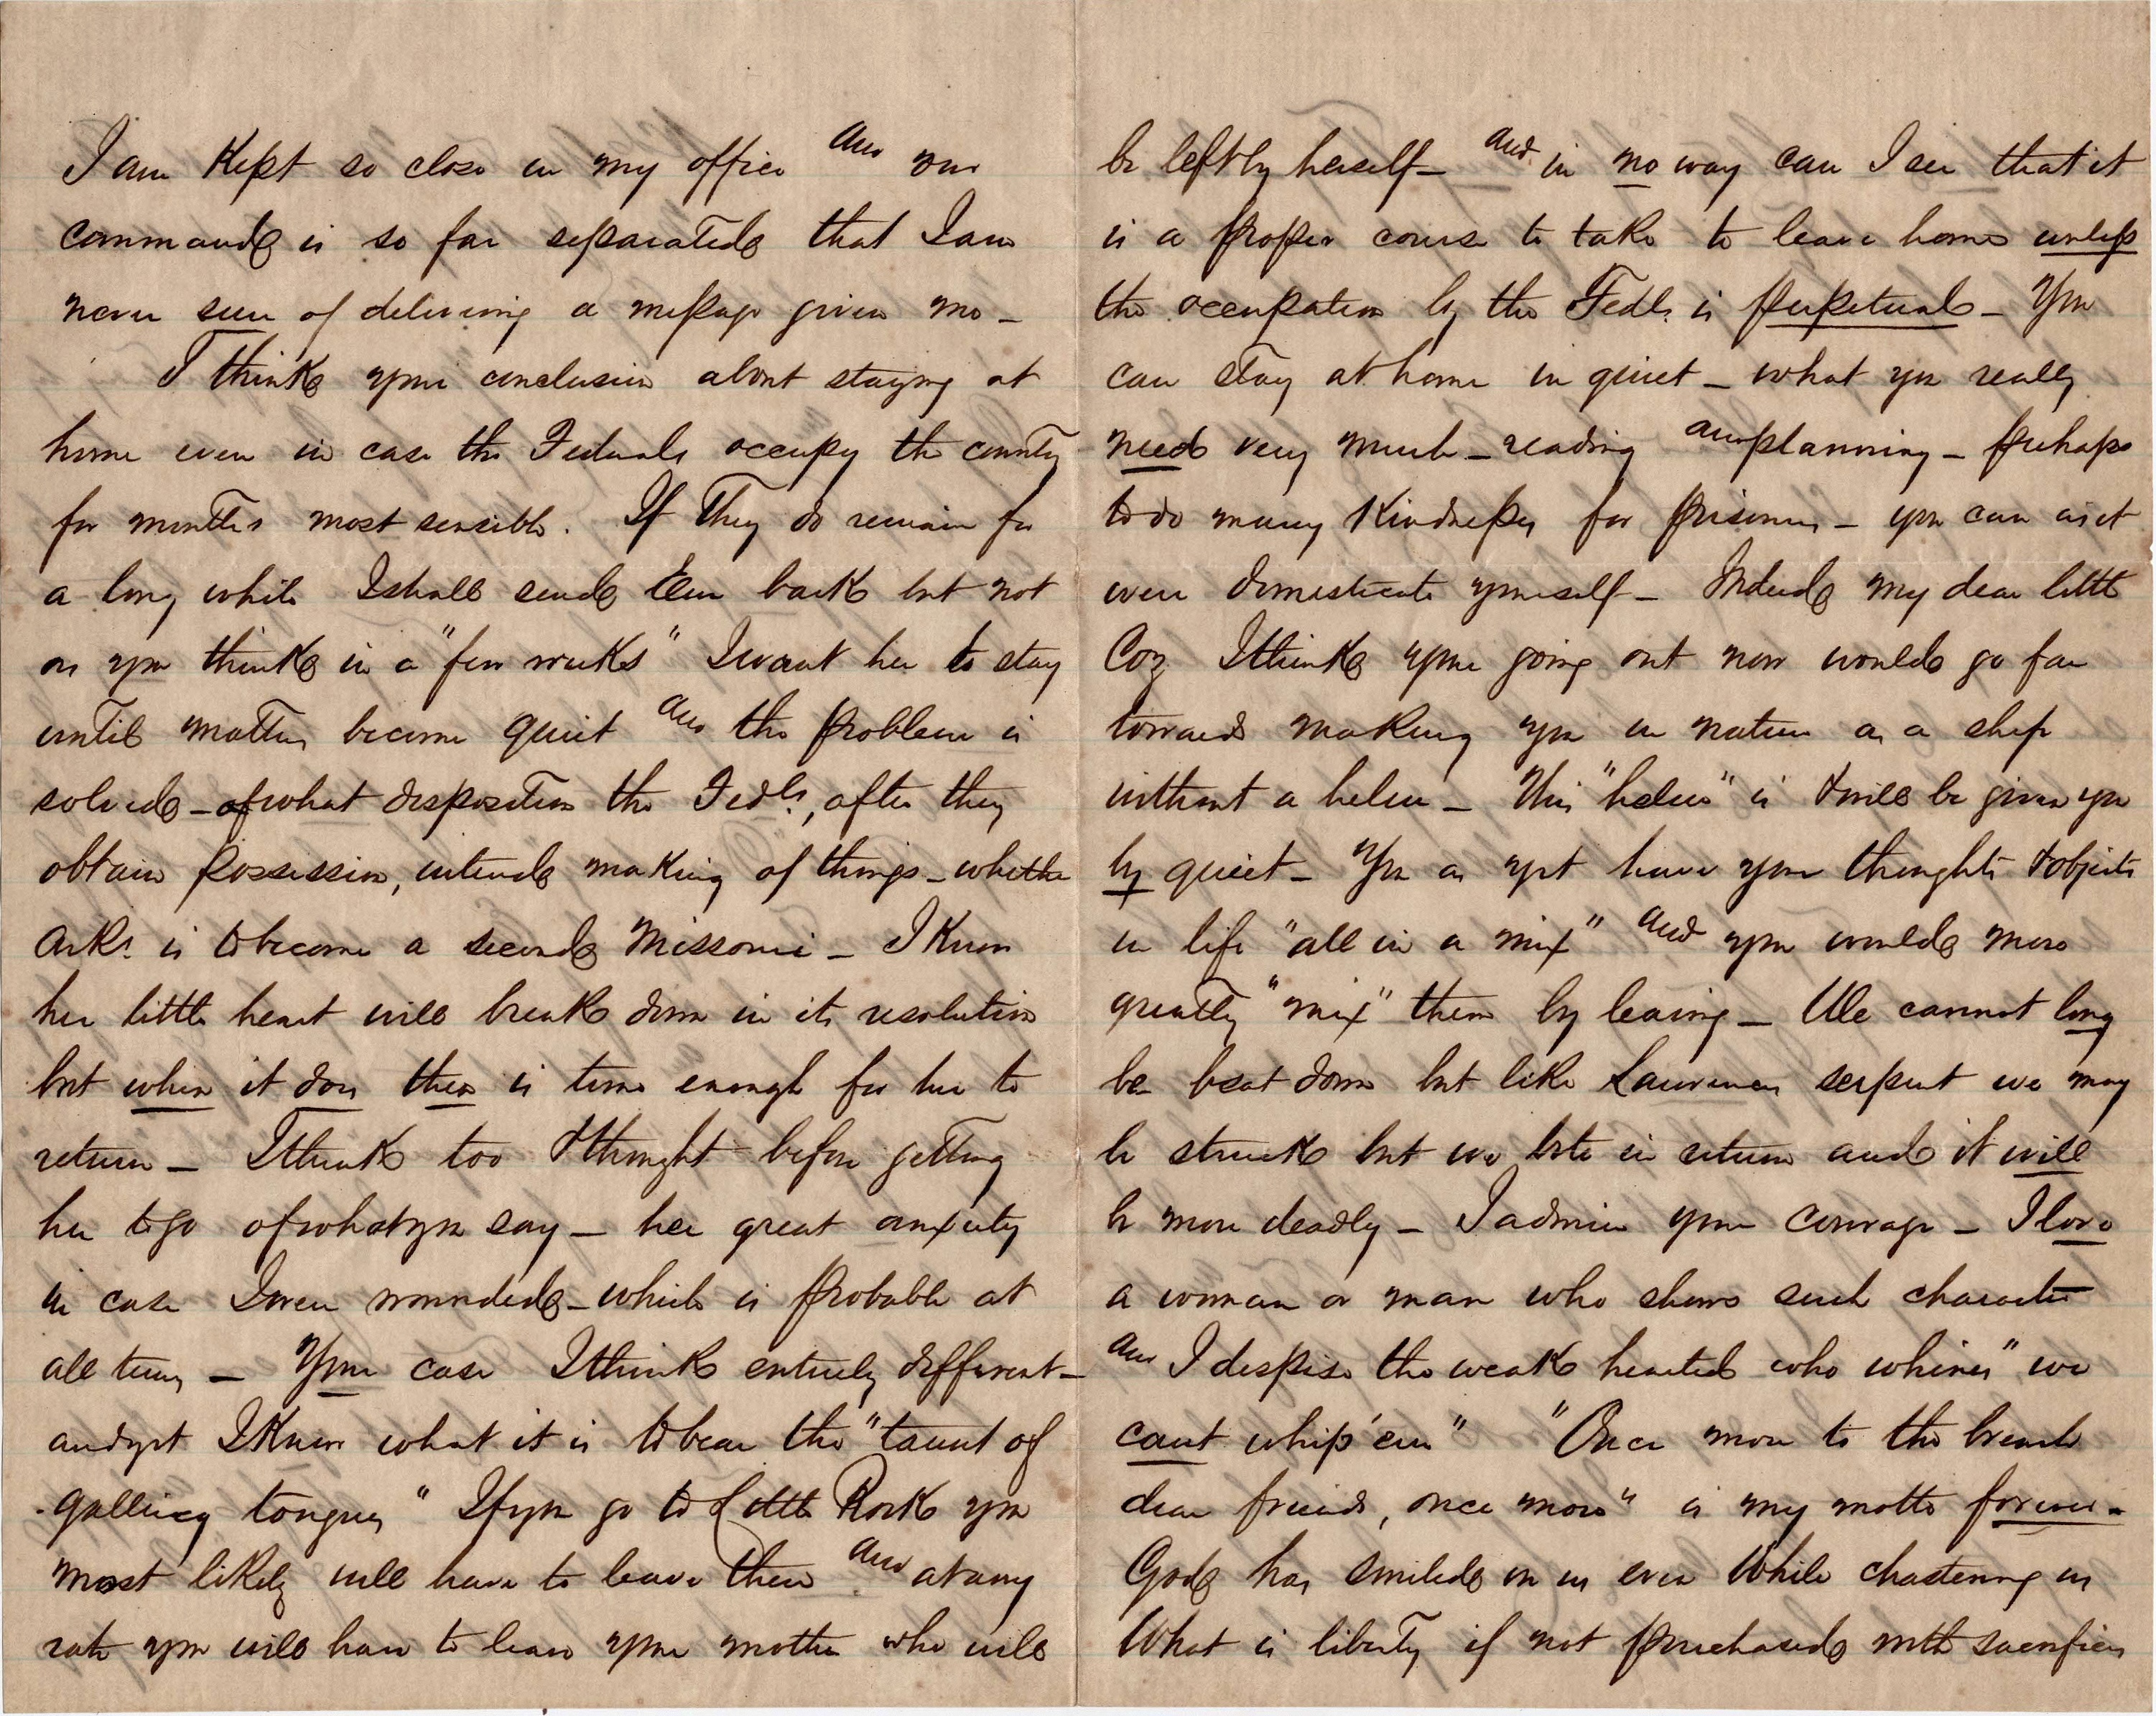 I am Kept so close in my office and our
command is so far separated that I am
never sure of delivering a message given me -
I think your conclusion about staying at
home even in case the Federals occupy the county
for months most sensible. If They do remain for
a long while I shall send Em back but not
as you think in a "few weeks" I want her to stay
until matters become quiet and the problem is
solved - of what disposition the Fedls, after they
obtain possession, intend making of things - whether
Arks. is to become a second Missouri - I Know
her little heart will break down in its resolution
but when it does then is time enough for her to
return - I think too & thought before getting
her to go of what you say - her great anxiety
in case I were wounded - which is probable at
all times - Your case I think entirely different -
and yet I Know what it is to bear the "taunt of
galling tongues" If you go to Little Rock you
most likely will have to leave there and at any
rate you will have to leave your mother who will
be left by herself - and in no way can I see that it
is a proper course to take to leave home unless
the occupation by the Fedls. is perpetual - You
can stay at home in quiet - what you really
need very much - reading and planning - perhaps
to do many Kindnesses for prisoners - you can
even domesticate yourself - Indeed my dear little
Coz I think your going out now would go far
towards making you in nature as a ship
without a helm - This "helm" is & will be given you
by quiet - You as yet have your thoughts & objects
in life "all in a mix" and you would more
greatly "mix" them by leaving - We cannot long
be beat down but like serpent we may
be struck but we bite in return and it will
be more deadly - I admire your courage - I love
a woman or man who shows such character
and I despise the weak hearted who whines "we
cant whip 'em" "Once more to the breach
dear friends, once more" is my motto forever -
God has smiled on us even While chastening us
What is liberty if not purchased with sacrifices